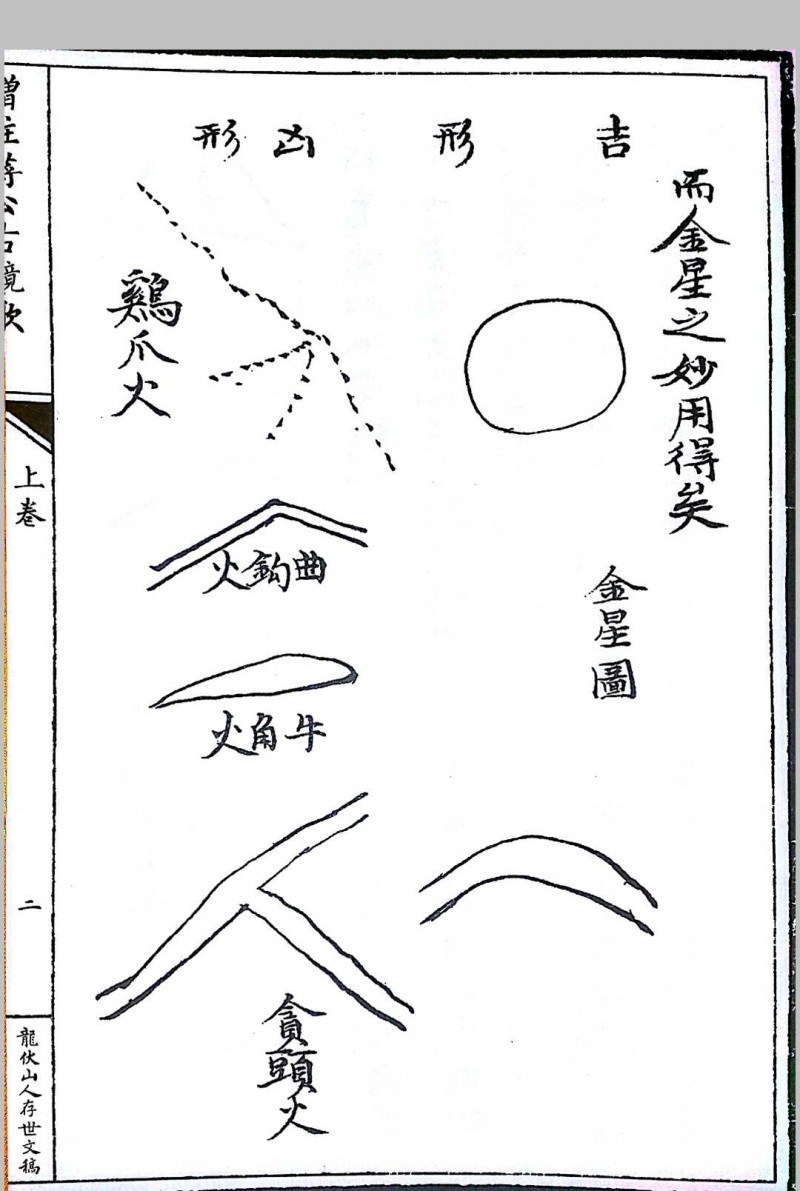 而金星之妙用得矣
吉形
金星圖
凶形
鷄爪火
曲鈎火
牛角火
貪頭火
增注蔣公古鏡歌
上卷
二
龍伏山人存世文稿